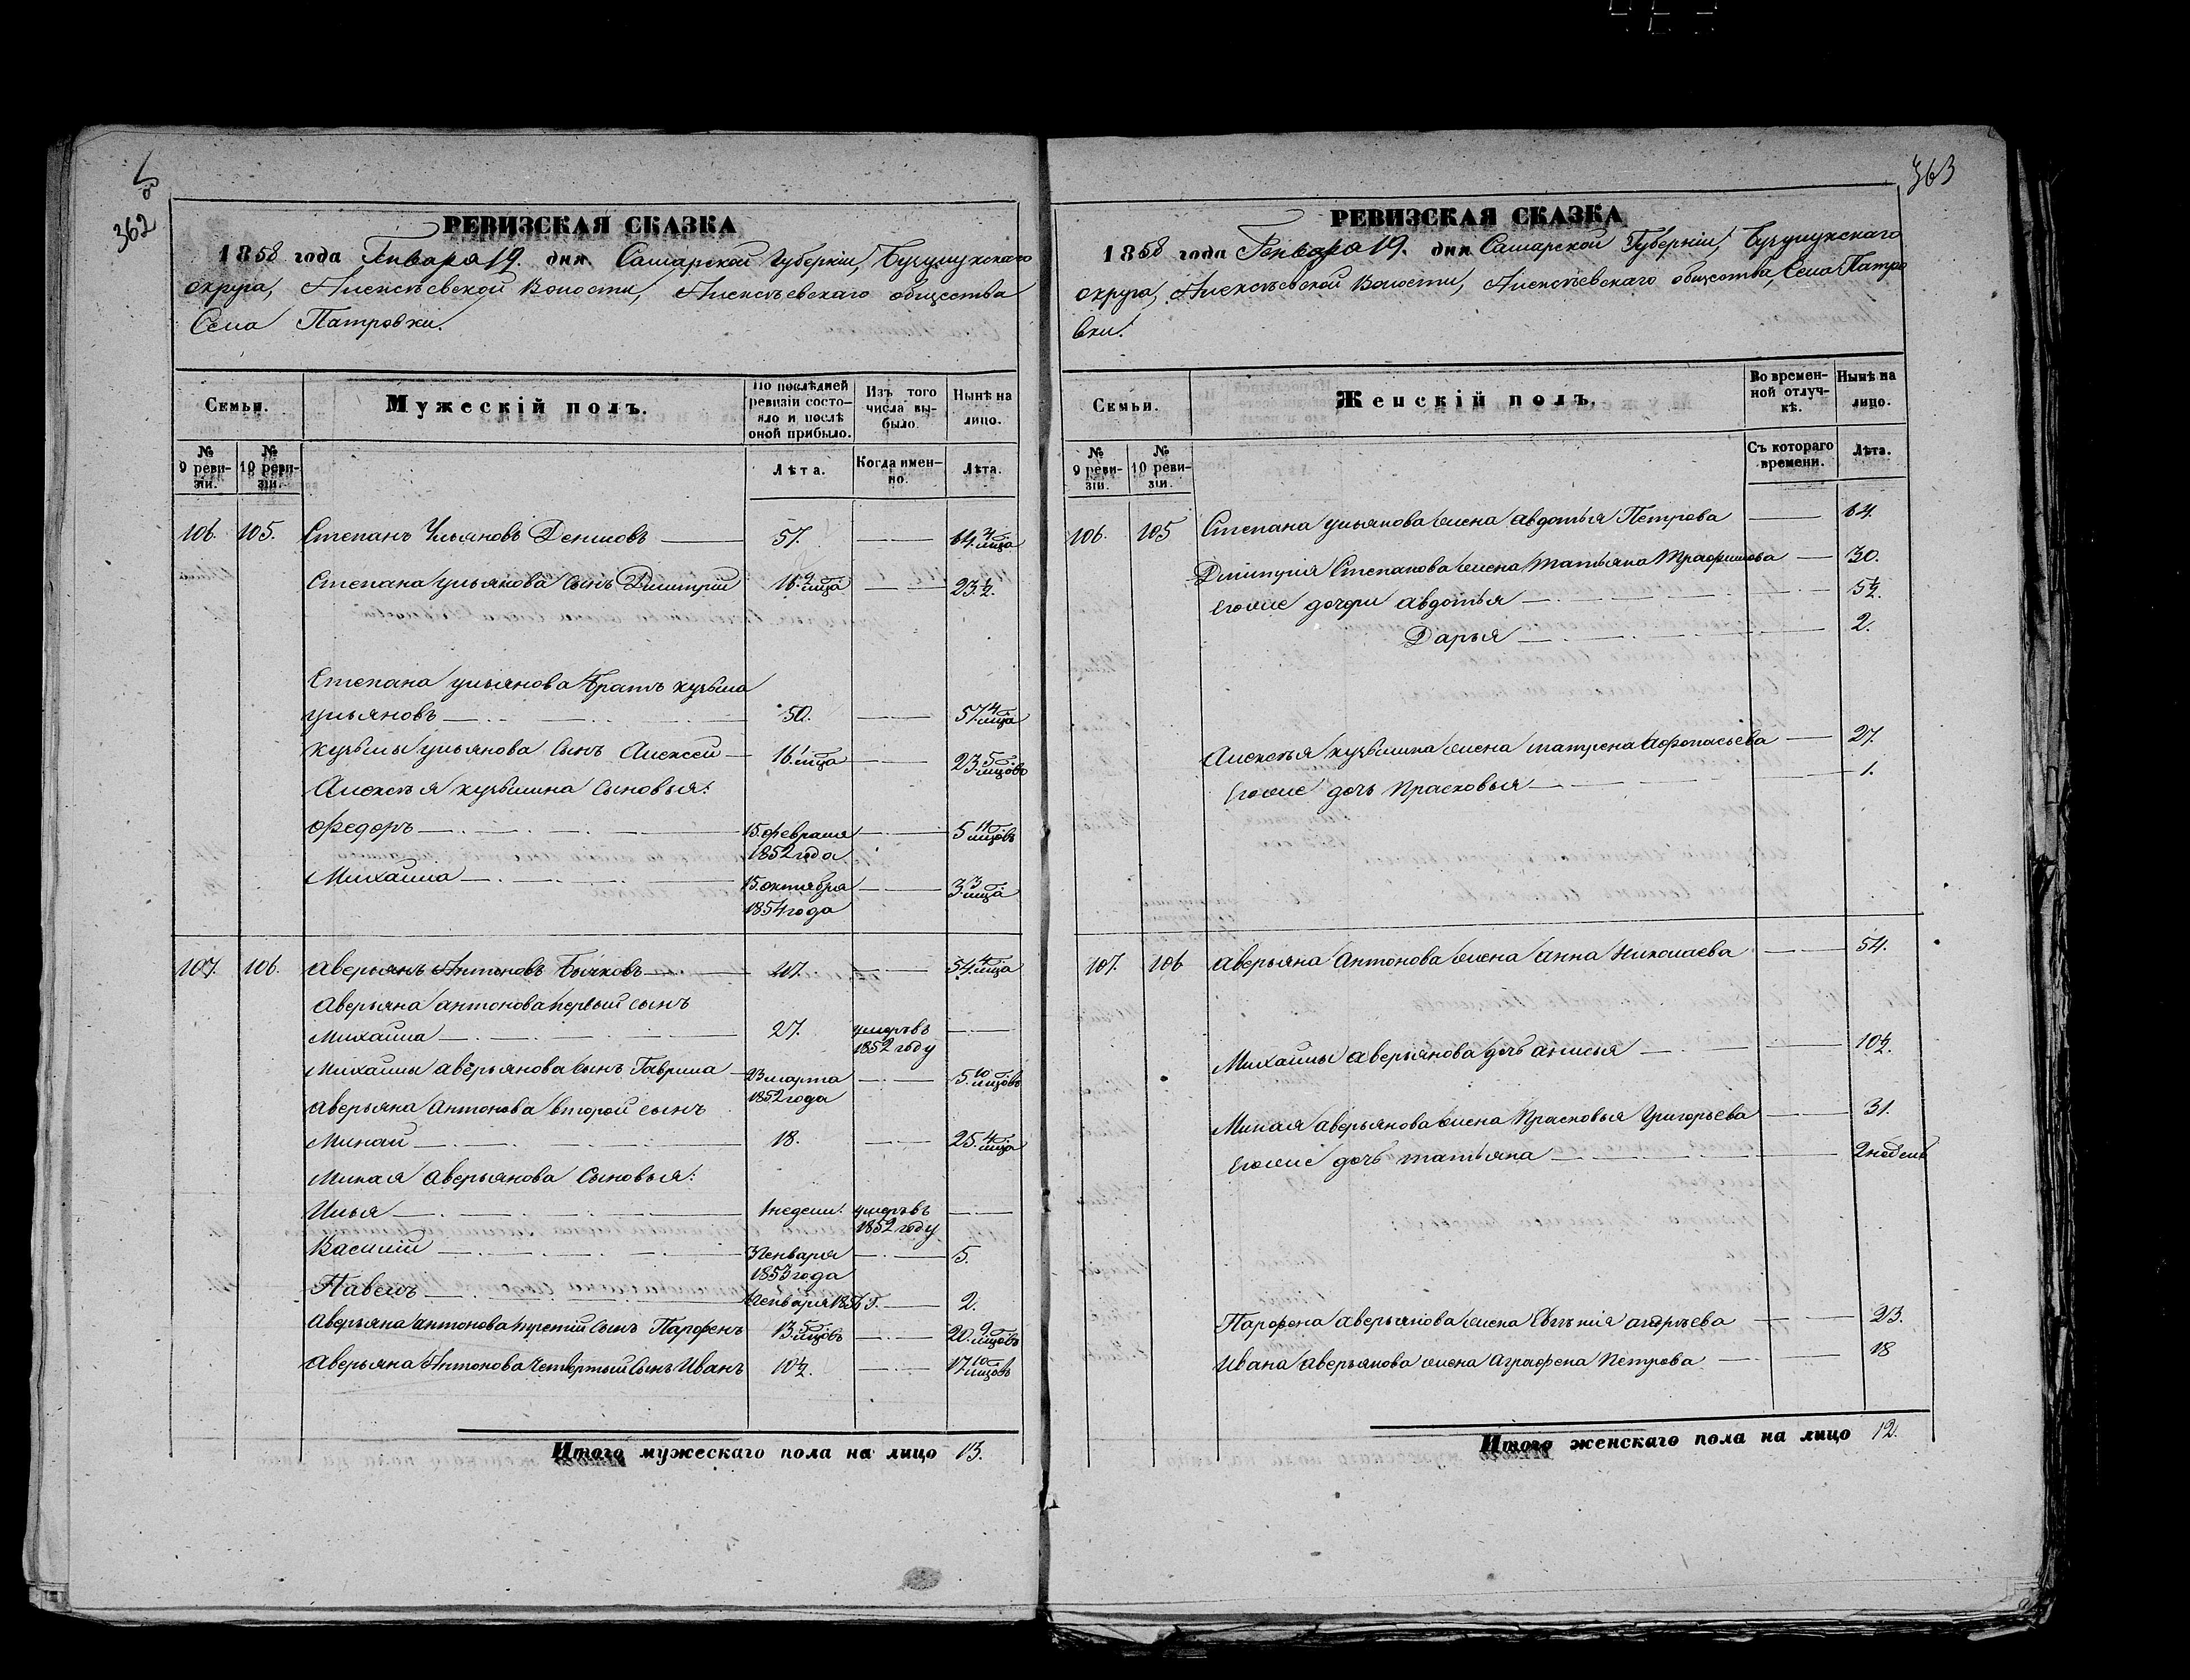 362
РЕВИЗСКАЯ СКАЗКА
1858 года Генваря 19. дня Самарской Губерніи, Бузулукскаго
округа, Алексѣевской Волости, Алексѣевскаго общества
Села Патровки.
Семьи.
Мужескій полъ.
По послѣдней ревизіи состояло и послѣ оной прибыло.
Изъ того числа выбыло.
Нынѣ на лицо.
№ 9 ревизіи.
№ 10 ревизіи.
Лѣта.
Когда именно.
Лѣта.
106. 105. Степанъ Ульяновъ 57. 64 4 мца
Степана Ульянова Сынъ Дмитрій 16 9 мца 23 1/2.
Степана Ульянова Братъ Кузьма
Ульяновъ 50. 57 4 мца
Кузьмы Ульянова Сынъ Алексей 16. 1 мца 23 5 мцовъ
Алексѣя Кузьмина Сыновья:
Федоръ 15 февраля 1852 года 5 11 мцовъ
Михаила 15 октября 1854 года 3 3 мца
107. 106. Аверьянъ Антоновъ Бычковъ 47. 54 4 мца
Аверьяна Антонова первый сынъ
Михаила 27. умеръ въ 1852 году
Михаилы Аверьянова Сынъ Гаврила 23 марта 1852 года 5. 10 мцовъ
Аверьяна Антонова второй сынъ
Минай 18. 25 4 мца
Миная Аверьянова Сыновья:
Илья 1 недели. умеръ въ 1852 году
Василій 3 Генваря 1853 года 5.
Павелъ Генваря 1856 г. 2.
Аверьяна Антонова третій Сынъ Парфенъ 13 5 мцовъ 20 9 мцовъ
Аверьяна Антонова четвертый Сынъ Иванъ 10 1/2. 17 10 мцовъ
Итого мужескаго пола на лицо 13.
363
РЕВИЗСКАЯ СКАЗКА
1858 года Генваря 19. дня Самарской Губерніи, Бузулукскаго
округа, Алексѣевской Волости, Алексѣевскаго общества, Села Патро
вки.
Семьи.
Женскій полъ.
Во временной отлучкѣ.
Нынѣ на лицо.
№ 9 ревизіи.
№ 10 ревизіи.
Съ котораго времени.
Лѣта.
106. 105 Степана Ульянова жена Авдотья Петрова 64.
Дмитрія Степанова жена Татьяна Трафимова 30.
Егоже дочери Авдотья 5 1/2.
Дарья 2.
Алексѣя Кузьмина жена Матрена Афонасьева 27.
Егоже дочь Прасковья 1.
107. 106 Аверьяна Антонова жена Анна Николаева 54.
Михаилы Аверьянова дочь Анисья 10 1/2.
Миная Аверьянова жена Прасковья Григорьева 31.
Егоже дочь Татьяна 2 недель
Парфена Аверьянова жена Андрѣева 23.
Ивана Аверьянова жена Аграфена Петрова 18
Итого женскаго пола на лицо 12.